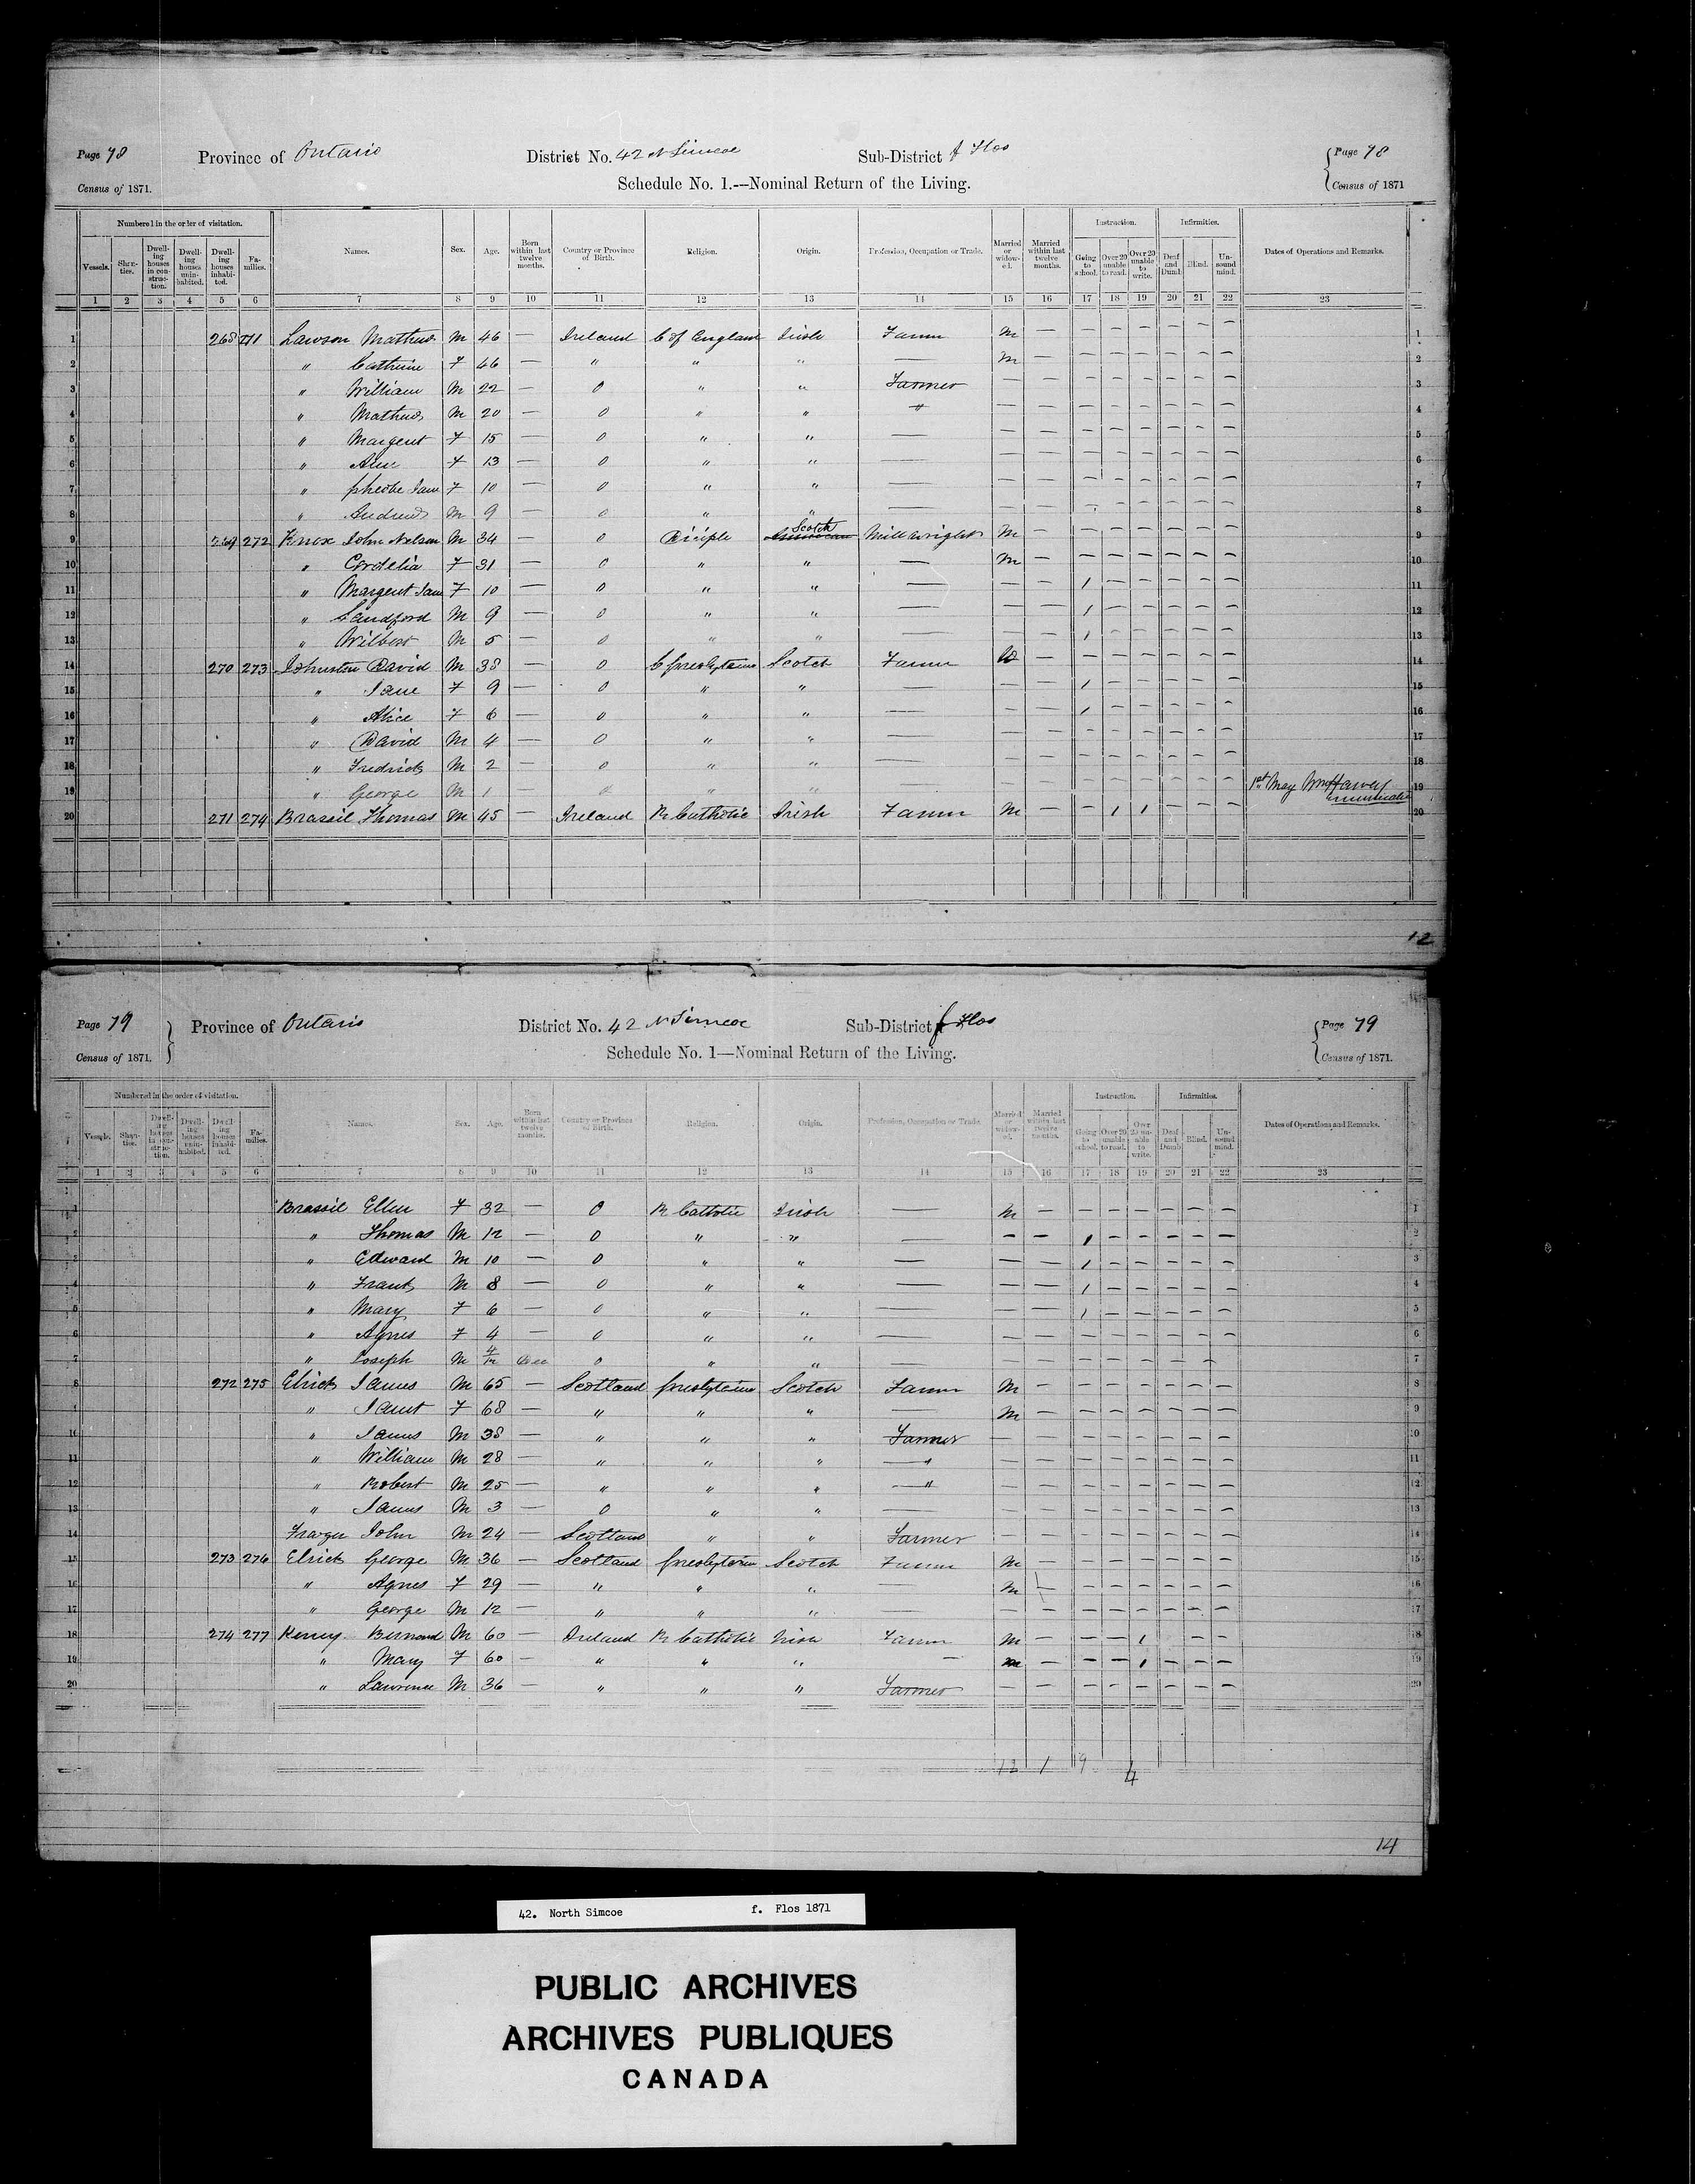 Page 78 Province of Ontario District No. 42 N Simcoe Sub-District f Flos Page 78
Census of 1871. Schedule No. 1.—Nominal Return of the Living. Census of 1871
Numbered in the order of visitation. Instruction. Infirmities.
Vessels. Shanties. Dwelling houses in construction. Dwelling houses uninhabited. Dwelling houses inhabited. Families. Names. Sex. Age. Born within last twelve months. Country or Province of Birth. Religion. Origin. Profession, Occupation or Trade. Married or widowed. Married within last twelve months. Going to school. Over 20 unable to read. Over 20 unable to write. Deaf and Dumb. Blind. Unsound mind. Dates of Operations and Remarks.
1 2 3 4 5 6 7 8 9 10 11 12 13 14 15 16 17 18 19 20 21 22 23
1 268 271 Lawson Mathew M 46 — Ireland C of England Irish Farmer M — — — — — — — 1
2 " Cathrine F 46 — " " " — M — — — — — — — 2
3 " William M 22 — O " " Farmer — — — — — — — — 3
4 " Mathew M 20 — O " " " — — — — — — — — 4
5 " Margent F 15 — O " " — — — — — — — — — 5
6 " Ann F 13 — O " " — — — — — — — — — 6
7 " Pheobe Jane F 10 — O " " — — — — — — — — — 7
8 " Andrew M 9 — O " " — — — — — — — — 8
9 269 272 Knox John Nelson M 34 — O Diciple Scotch Millwright M — — — — — — — 9
10 " Cordelia F 31 — O " " — M — — — — — — — 10
11 " Margent Jane F 10 — O " " — — — 1 — — — — — 11
12 " Sandford M 9 — O " " — — — 1 — — — — — 12
13 " Wilbert M 5 — O " " — — — 1 — — — — — 13
14 270 273 Johnston David M 38 — O C Presbyterian Scotch Farmer W — — — — — — — 14
15 " Jane F 9 — O " " — — — 1 — — — — — 15
16 " Alice F 6 — O " " — — — 1 — — — — — 16
17 " David M 4 — O " " — — — — — — — — — 17
18 " Fredrick M 2 — O " " — — — — — — — — — 18
19 " George M 1 — O " " — — — — — — — — — 1st May Wm Harvey Enumerator 19
20 271 274 Brassil Thomas M 45 — Ireland R Catholic Irish Farmer M — — 1 1 — — — 20
12
Page 79 Province of Ontario District No. 42 N Simcoe Sub-District f Flos Page 79
Census of 1871. Schedule No. 1—Nominal Return of the Living. Census of 1871.
Numbered in the order of visitation. Instruction. Infirmities.
Vessels. Shanties. Dwelling houses in construction. Dwelling houses uninhabited. Dwelling houses inhabited. Families. Names. Sex. Age. Born within last twelve months. Country or Province of Birth. Religion. Origin. Profession, Occupation or Trade. Married or widowed. Married within last twelve months. Going to school. Over 20 unable to read. Over 20 unable to write. Deaf and Dumb. Blind. Unsound mind. Dates of Operations and Remarks.
1 2 3 4 5 6 7 8 9 10 11 12 13 14 15 16 17 18 19 20 21 22 23
1 Brassil Ellen F 32 — O R Catholic Irish — M — — — — — — — 1
2 " Thomas M 12 — O " " — — — 1 — — — — — 2
3 " Edward M 10 — O " " — — — 1 — — — — — 3
4 " Frank M 8 — O " " — — — 1 — — — — — 4
5 " Mary F 6 — O " " — — — 1 — — — — — 5
6 " Agnes F 4 — O " " — — — — — — — — — 6
7 " Joseph M 4/12 Dec O " " — — — — — — — — 7
8 272 275 Elrick James M 65 — Scotland Presbyterian Scotch Farmer M — — — — — — — 8
9 " Janet F 68 — " " " — M — — — — — — — 9
10 " James M 38 — " " " Farmer — — — — — — — — 10
11 " William M 28 — " " " " — — — — — — — — 11
12 " Robert M 25 — " " " " — — — — — — — — 12
13 " James M 3 — O " " — — — — — — — — — 13
14 John M 24 — Scotland " " Farmer — — — — — — — — 14
15 273 276 Elrick George M 36 — Scotland Presbyterian Scotch Farmer M — — — — — — — 15
16 " Agnes F 29 — " " " — M — — — — — — — 16
17 " George M 12 — " " " — — — — — — — — — 17
18 274 277 Bernard M 60 — Ireland R Catholic Irish Farmer M — — — 1 — — — 18
19 " Mary F 60 — " " " — M — — — 1 — — — 19
20 " Lawrence M 36 — " " " Farmer — — — — — — — — 20
12 1 9 4
14
42. North Simcoe f. Flos 1871
PUBLIC ARCHIVES
ARCHIVES PUBLIQUES
CANADA